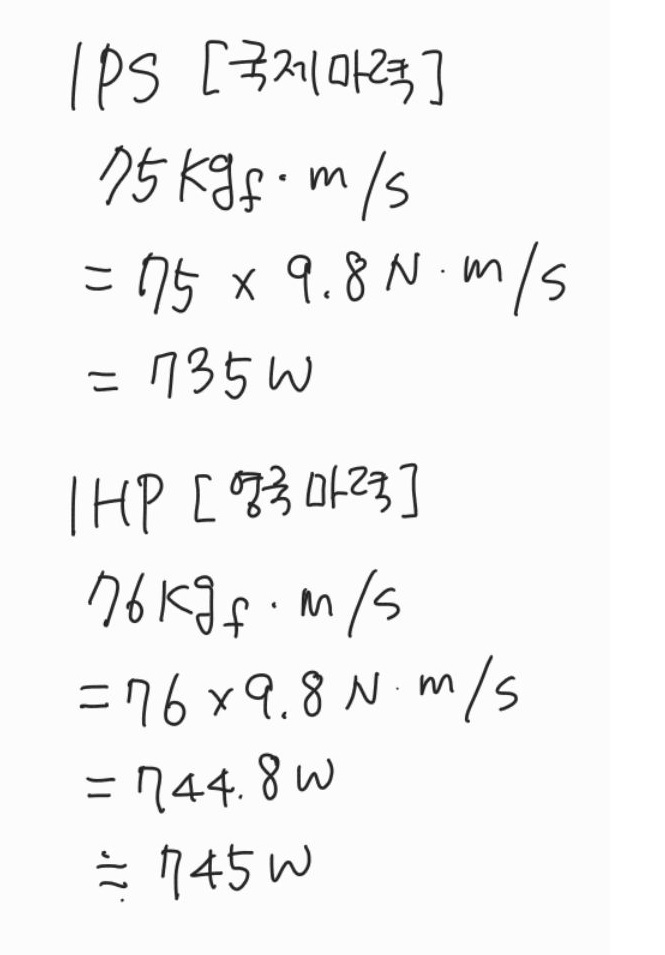 1PS [국제마력]
75kgf·m/s
= 75 × 9.8N·m/s
= 735W
1HP [영국마력]
76kgf·m/s
= 76 × 9.8N·m/s
= 744.8W
≒ 745W